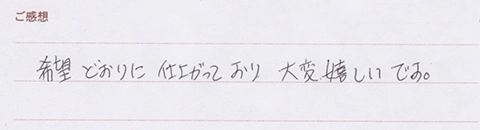 ご感想
希望どおりに仕上がっており 大変嬉しいです。